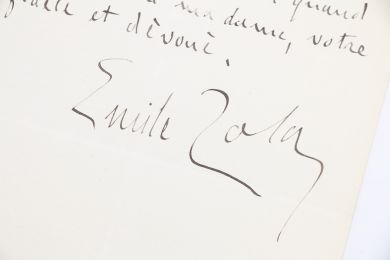 quand
madame, votre
et dévoué.
Emile Zola